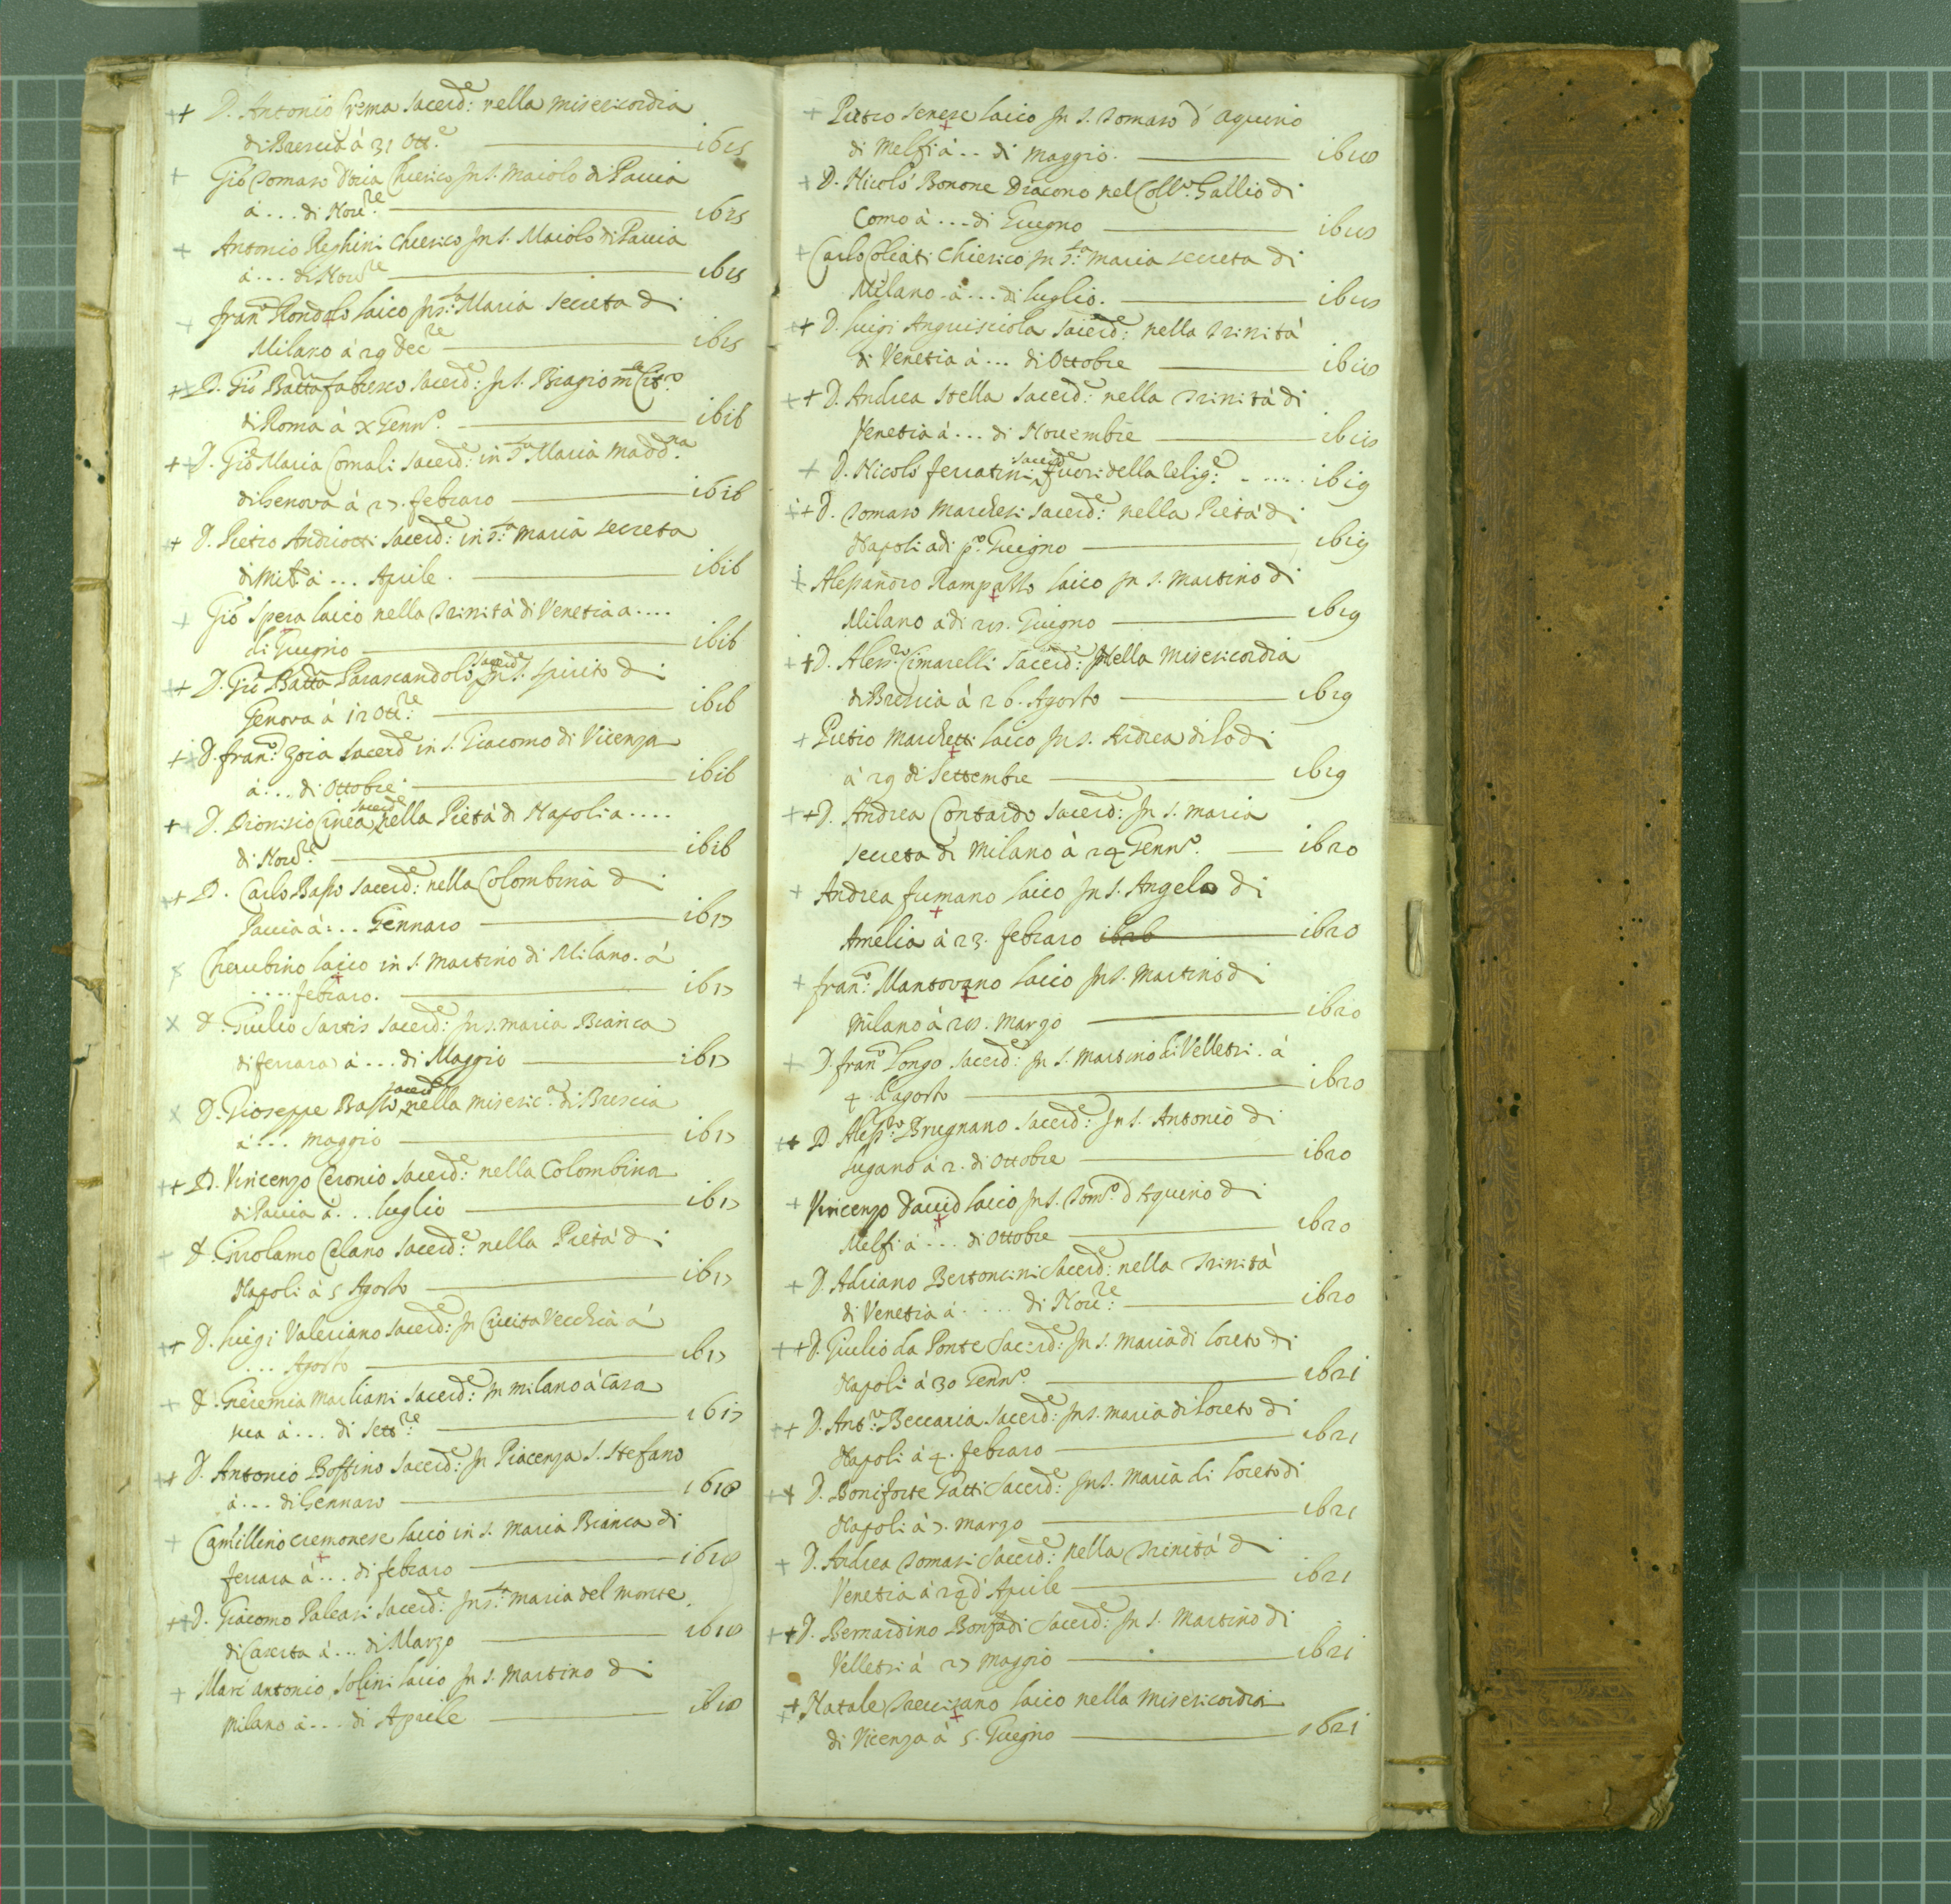 ++ D. Antonio Crema Sacerd:e nella Misericordia
di Brescia à 31 Ott.e 1615
+ Gio Tomaso Doria Chierico in S. Maiolo di Pavia
à ... di Nov.re 1615
+ Antonio Reghini chierico in S. Maiolo di Pavia
à ... di Nov.re 1615
+ Fran.o Rondolo laico in S.ta Maria secreta di
Milano à 29 Dec.re 1615
++ D. Gio Batta Sacerd:e in S. Biagio
di Roma à X Genn.o 1616
++ D. Gio Maria Comali Sacerd:e in S.ta Maria Madd.na
di Genova à 27. febraro 1616
++ D. Pietro Andriotti Sacerd:e in S.ta Maria secreta
di Mil.o à ... Aprile. 1616
+ Gio Spera laico nella Trinità di Venetia a ....
di Giugno 1616
++ D. Gio Batta Parascandolo Sacerd.e in S. Spirito di
Genova à 12 Ott.re 1616
++ D. fran.o Zoia Sacerd.e in S. Giacomo di Vicenza
à ... di Ottobre 1616
++ D. Dionisio Cinea sacerd.e nella Pietà di Napoli a ....
di Nov.re 1616
++ D. Carlo Basso Sacerd:e nella Colombina di
Pavia à ... Gennaro 1617
+ Cherubino laico in S. Martino di Milano. à
.... febraro. 1617
X D. Giulio Sartis Sacerd:e in S. Maria Bianca
di ferrara à ... di Maggio 1617
X D. Gioseppe Basso sacerd.e nella Miseric.a di Brescia
à ... Maggio 1617
++ D. Vincenzo Ceronio Sacerd:e nella Colombina
di Pavia à ... luglio 1617
+ D. Girolamo Celano Sacerd:e nella Pietà di
Napoli à 5 Agosto 1617
++ D. luigi Valeriano Sacerd:e in Civita Vecchia à
... Agosto 1617
+ D. Gieremia Marliani Sacerd:e in Milano à Casa
sua à ... di Sett.re 1617
++ D. Antonio Boffino Sacerd:e in Piacenza S. Stefano
à ... di Gennaro 1618
+ Camillino cremonese laico in S. Maria Bianca di
ferrara à ... di febraro 1618
++ D. Giacomo Paleari Sacerd:e in S.ta Maria del monte
di Caserta à ... di Marzo 1618
+ Marc'antonio Solini laico in S. Martino di
Milano à ... di Aprile 1618
+ Pietro Senese laico in S. Tomaso d'Aquino
di Melfi à .. di Maggio. 1618
+ D. Nicolò Bonone Diacono nel Coll.o Gallio di
Como à ... di Giugno 1618
+ Carlo Oleati Chierico in S.ta Maria secreta di
Milano à ... di luglio. 1618
++ D. luigi Anguisciola Sacerd:e nella Trinità
di Venetia à ... di Ottobre 1618
++ D. Andrea Stella Sacerd:e nella Trinità di
Venetia à ... di Novembre 1618
+ D. Nicolò ferratini sacerd.e fuori della Relig.e ..... 1619
++ D. Tomaso Marchesi Sacerd:e nella Pietà di
Napoli adi p.o Giugno 1619
+ Alessandro Rampazzo laico in S. Martino di
Milano adi 28. Giugno 1619
++ D. Aless.ro Cimarelli Sacerd:e nella Misericordia
di Brescia à 26. Agosto 1619
+ Pietro Marchetti laico in S. Andrea di lodi
à 29 di Settembre 1619
++ D. Andrea Contardo Sacerd:e in S. Maria
secreta di Milano à 24 Genn.o 1620
+ Andrea fumano laico in S. Angelo di
Amelia à 23. febraro 1626 1620
+ fran.o Mantovano laico in S. Martino di
Milano à 28. Marzo 1620
+ D. fran.o Longo Sacerd:e in S. Martino di Velletri. à
4. d'agosto 1620
++ D. Aless.ro Brugnano Sacerd:e in S. Antonio di
lugano à 2. di Ottobre 1620
+ Vincenzo David laico in S. Tom.o d'Aquino di
Melfi à ... di Ottobre 1620
+ D. Adriano Bertoncini Sacerd:e nella Trinità
di Venetia à .... di Nov.re 1620
++ D. Giulio da Ponte Sacerd:e in S. Maria di loreto di
Napoli à 30 Genn.o 1621
++ D. Ant.o Beccaria Sacerd:e in S. Maria di loreto di
Napoli à 4. febraro 1621
++ D. Boniforte Gatti Sacerd:e in S. Maria di loreto di
Napoli à 7. Marzo 1621
+ D. Andrea Tomasi Sacerd:e nella Trinità di
Venetia à 24 d'Aprile 1621
++ D. Bernardino Bonfadi Sacerd:e in S. Martino di
Velletri à 27 Maggio 1621
++ Natale Trevisano laico nella Misericordia
di Vicenza à 5. Giugno 1621